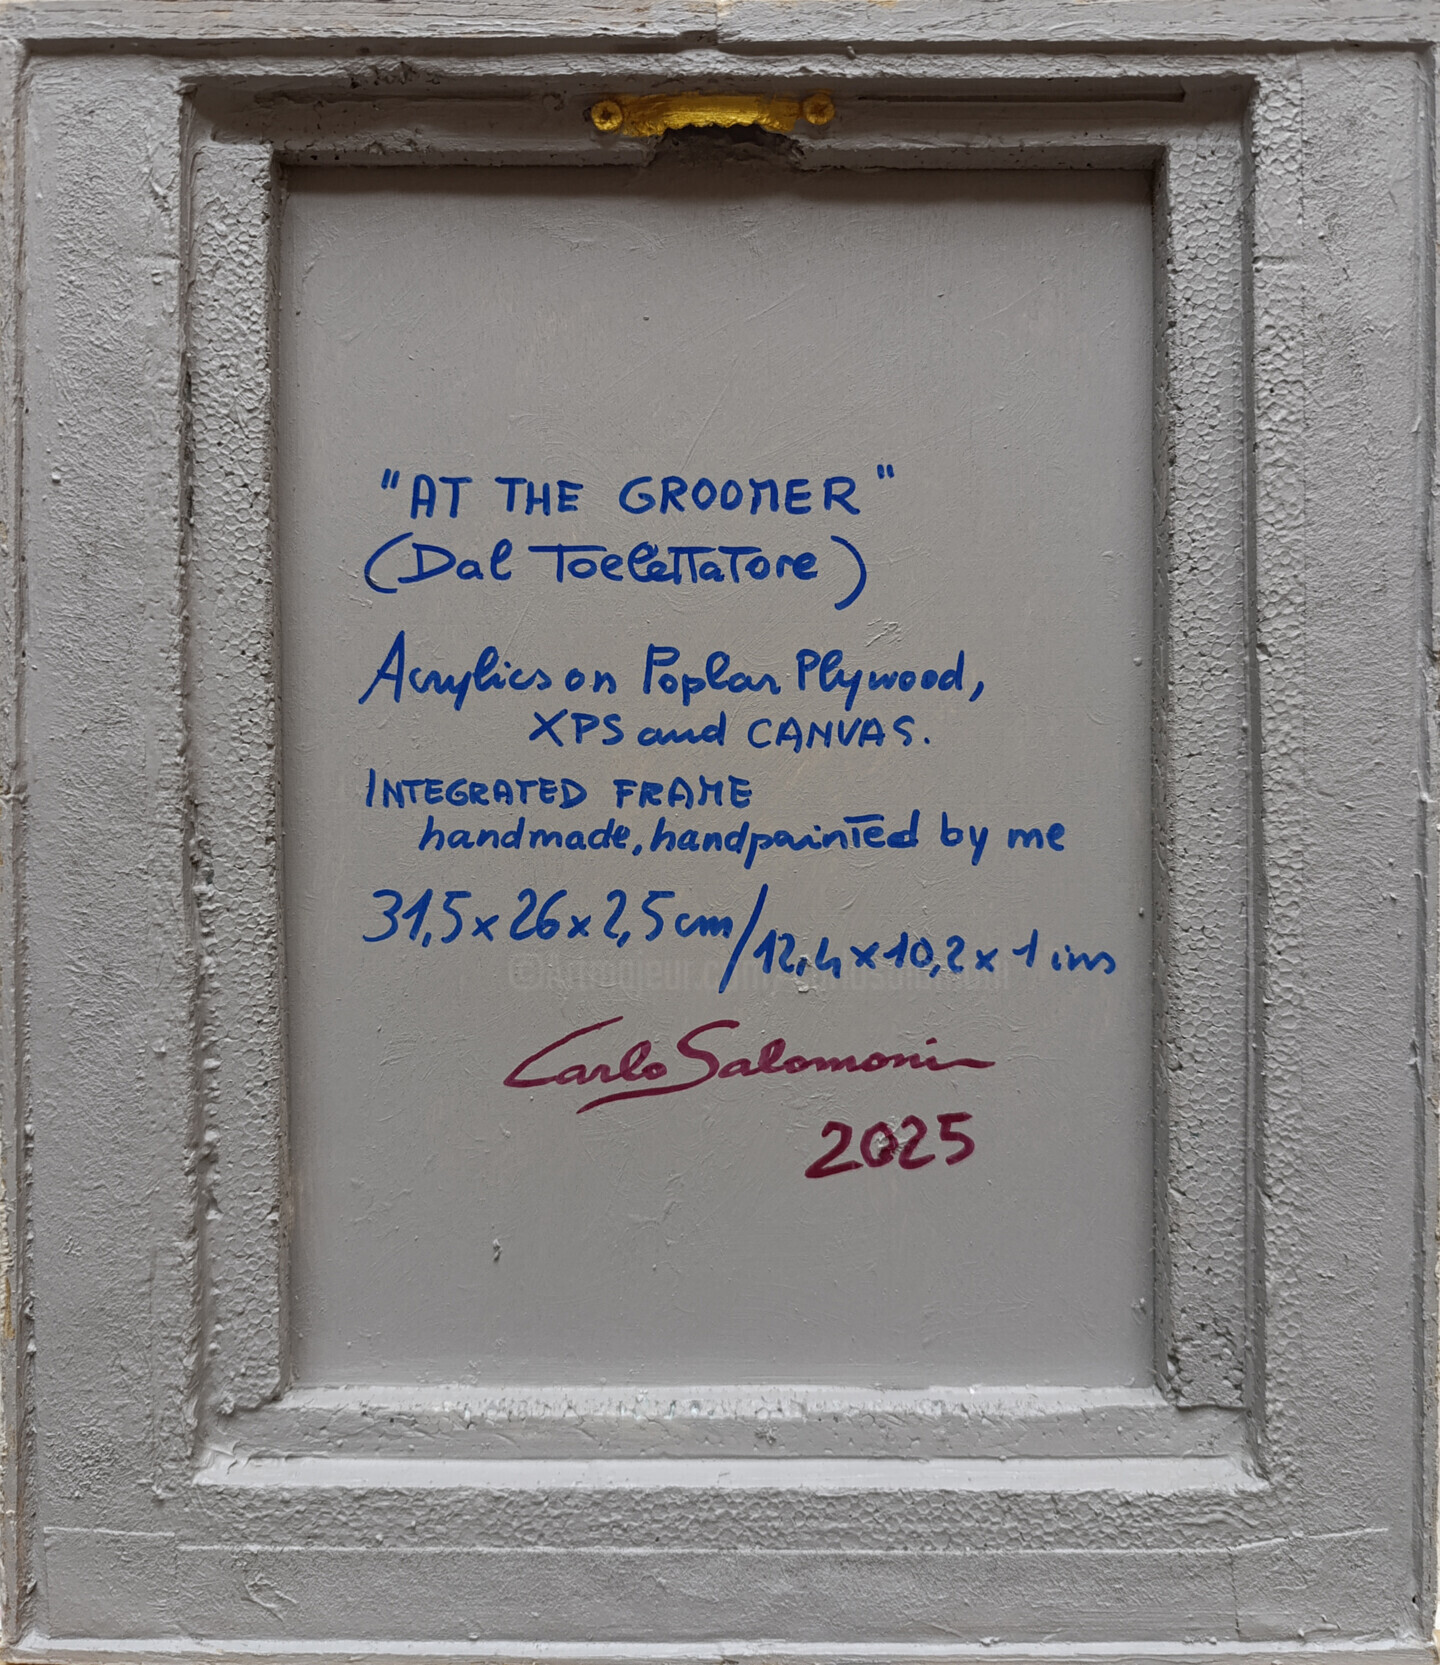 "AT THE GROOMER"
(Dal Toelettatore)
Acrylics on Poplar Plywood,
XPS and CANVAS.
INTEGRATED FRAME
handmade, handpainted by me
31,5 x 26 x 2,5 cm / 12,4 x 10,2 x 1 ins
©Artmajeur.com/carlosalomoni
Carlo Salomoni
2025